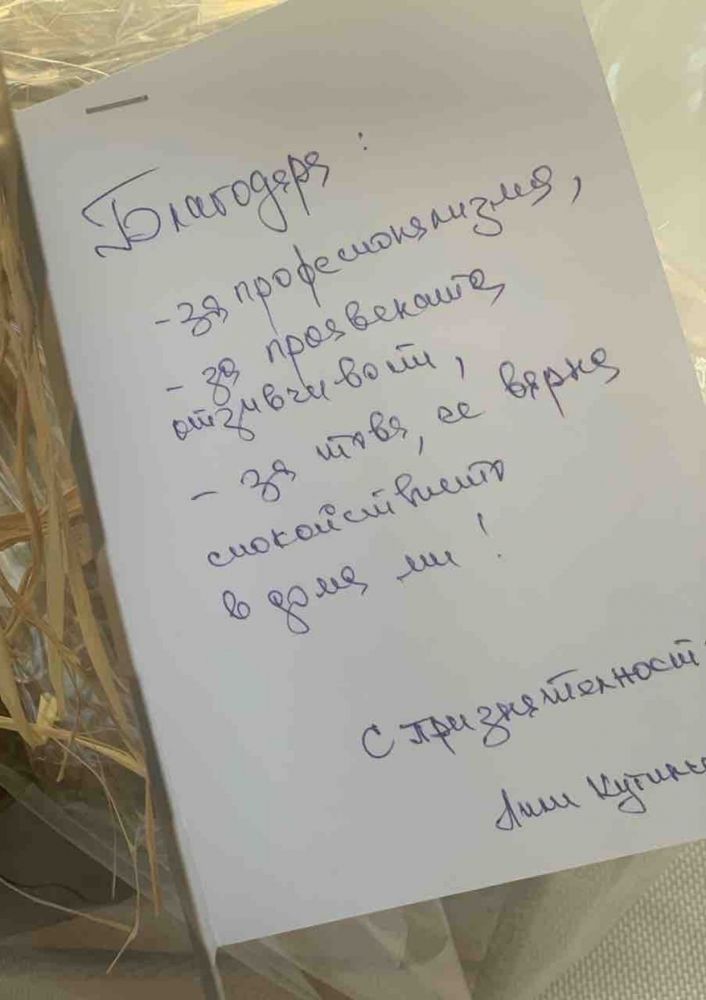 Благодаря:
- за професионализма,
- за проявената
отзивчивост,
- за това, че върна
спокойствието
в дома ми!
С признателност
Лили